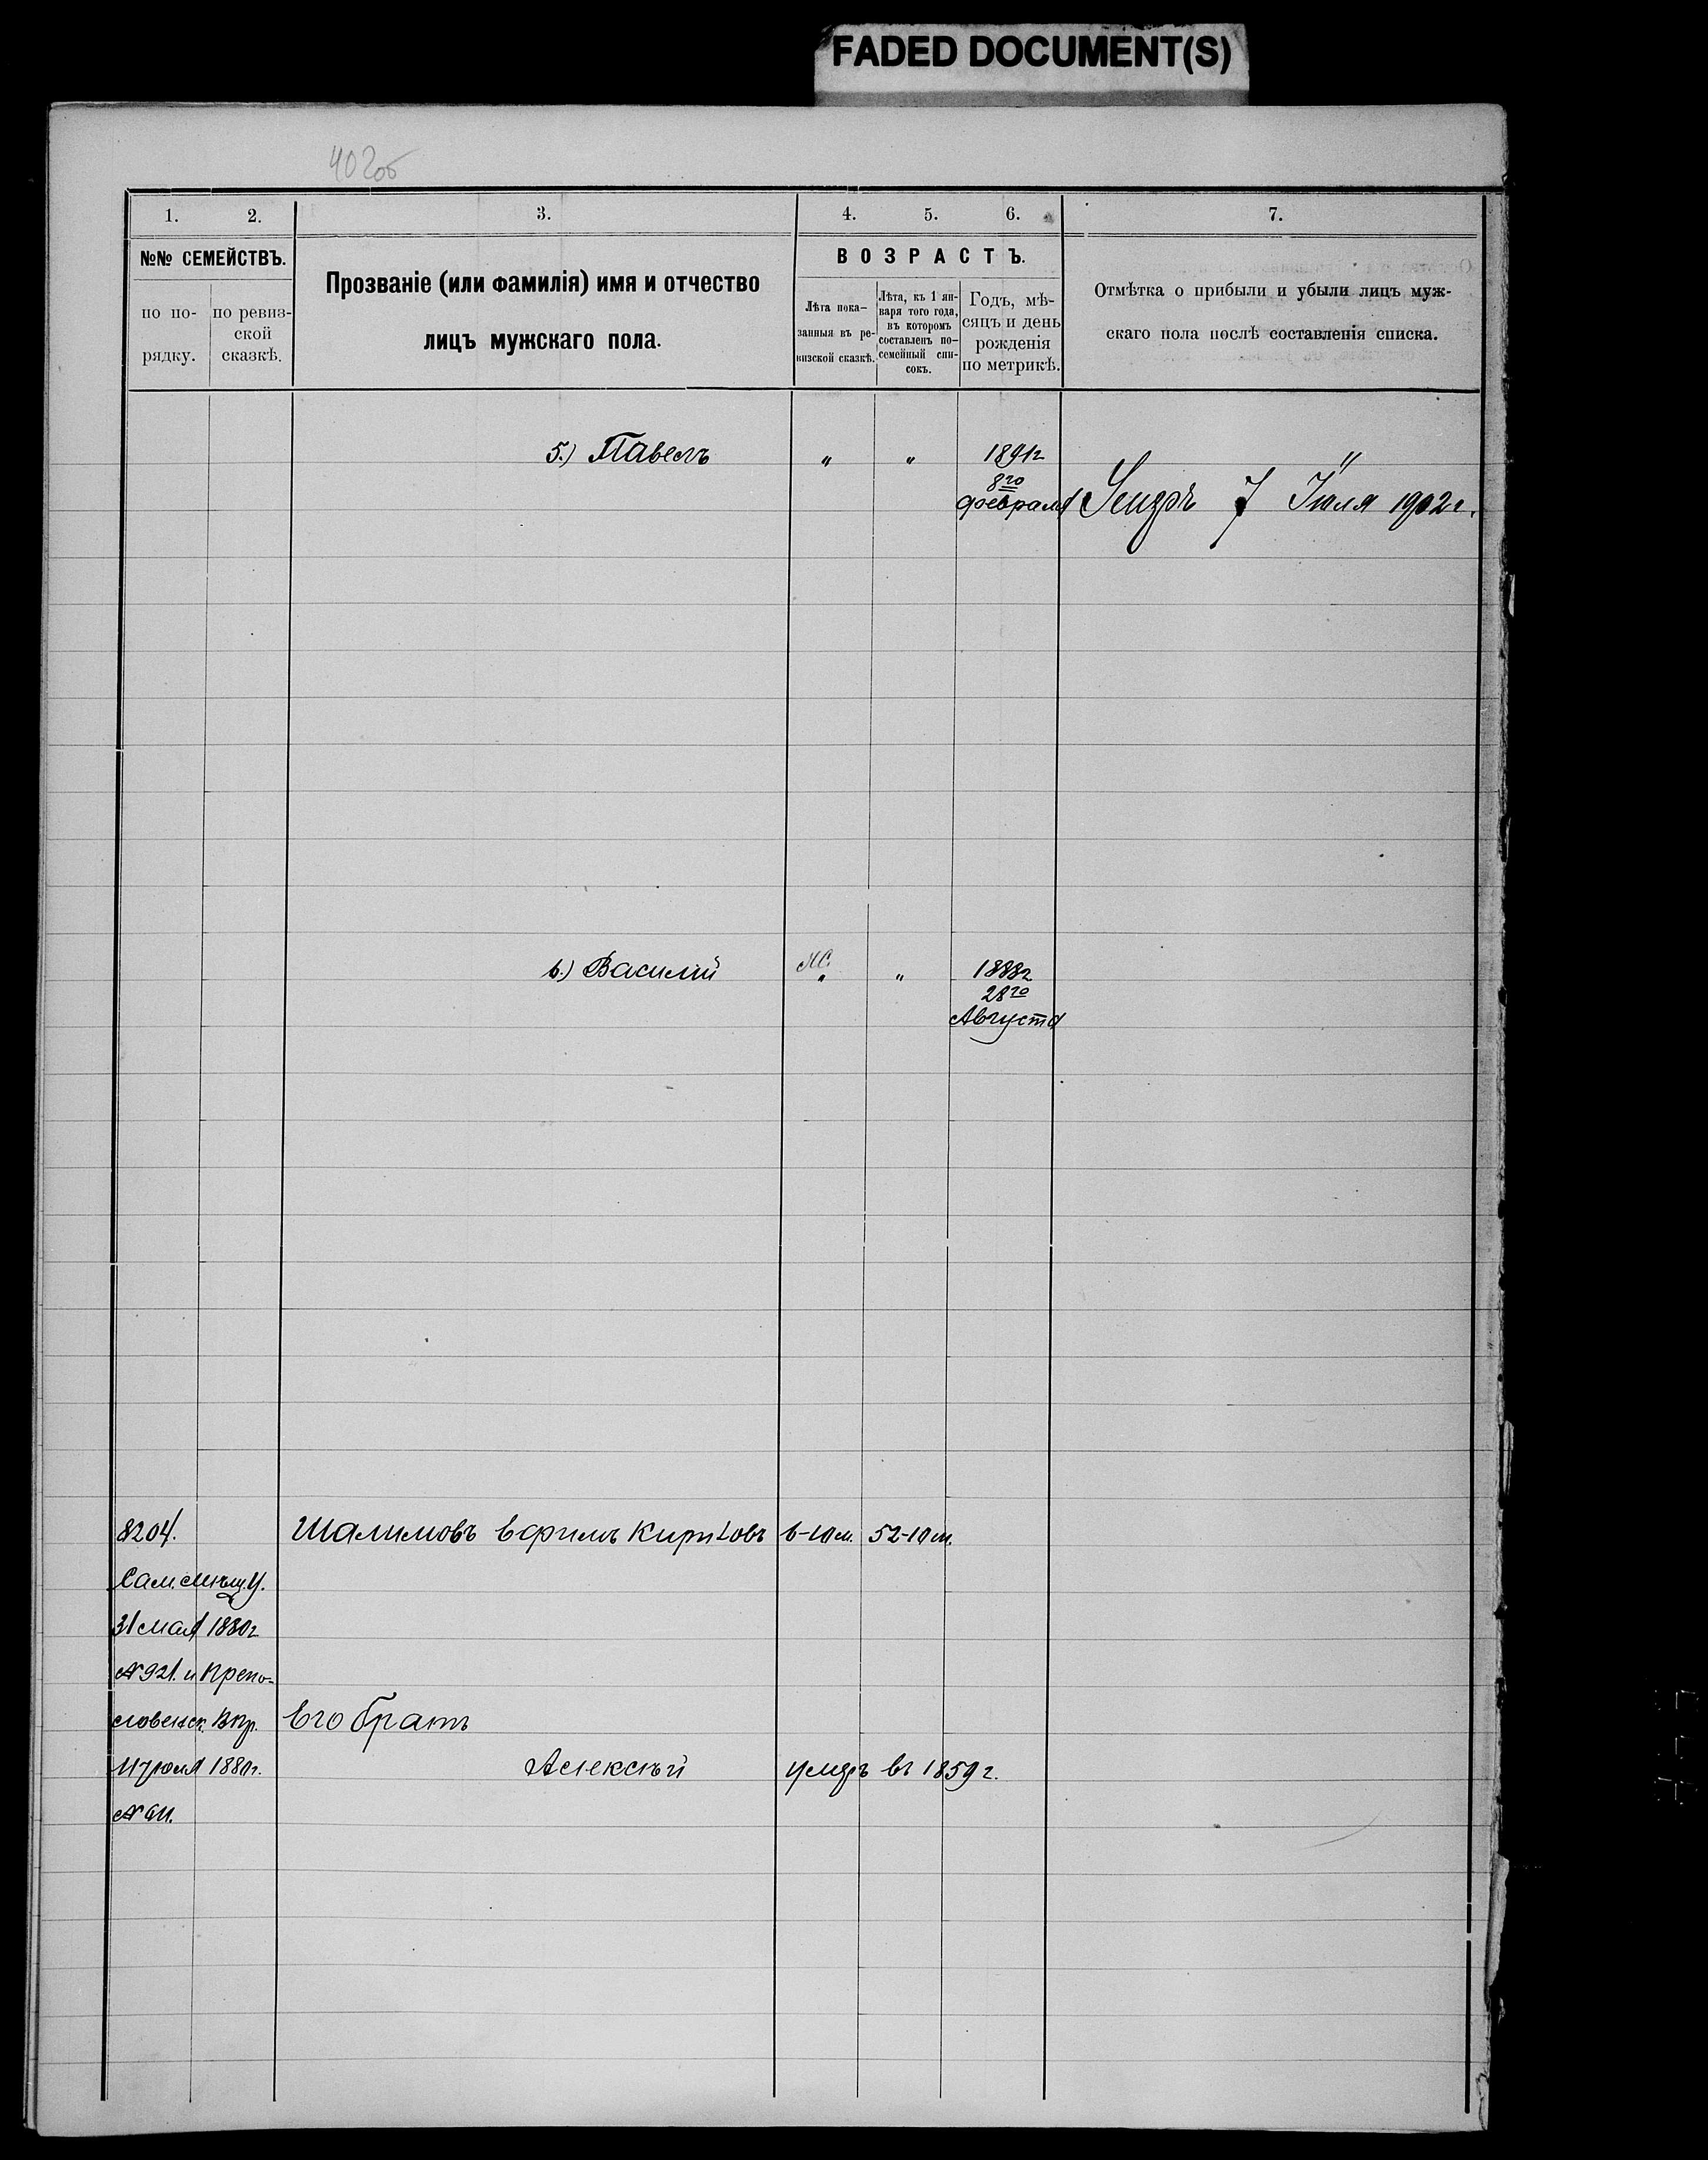 FADED DOCUMENT(S)
402об
1. 2. 3. 4. 5. 6. 7.
№№ СЕМЕЙСТВЪ.
по по-
рядку.
по ревиз-
ской
сказкѣ.
Прозваніе (или фамилія) имя и отчество
лицъ мужскаго пола.
ВОЗРАСТЪ.
Лѣта пока-
занныя въ ре-
визской сказкѣ.
Лѣта, къ 1 ян-
варя того года,
въ которомъ
составленъ по-
семейный спи-
сокъ.
Годъ, мѣ-
сяцъ и день
рожденія
по метрикѣ.
Отмѣтка о прибыли и убыли лицъ муж-
скаго пола послѣ составленія списка.
5.) Павелъ " " 1891г
8го
февраля Умеръ 7 Іюля 1902г.
6.) Василій " " 1888г
28го
Августа
8204. Шалимовъ Ефимъ Кириловъ 6-10м. 52-10м.
31 мая 1880г.
№921. и
Его братъ
Алексѣй умеръ въ 1859г.
1880г.